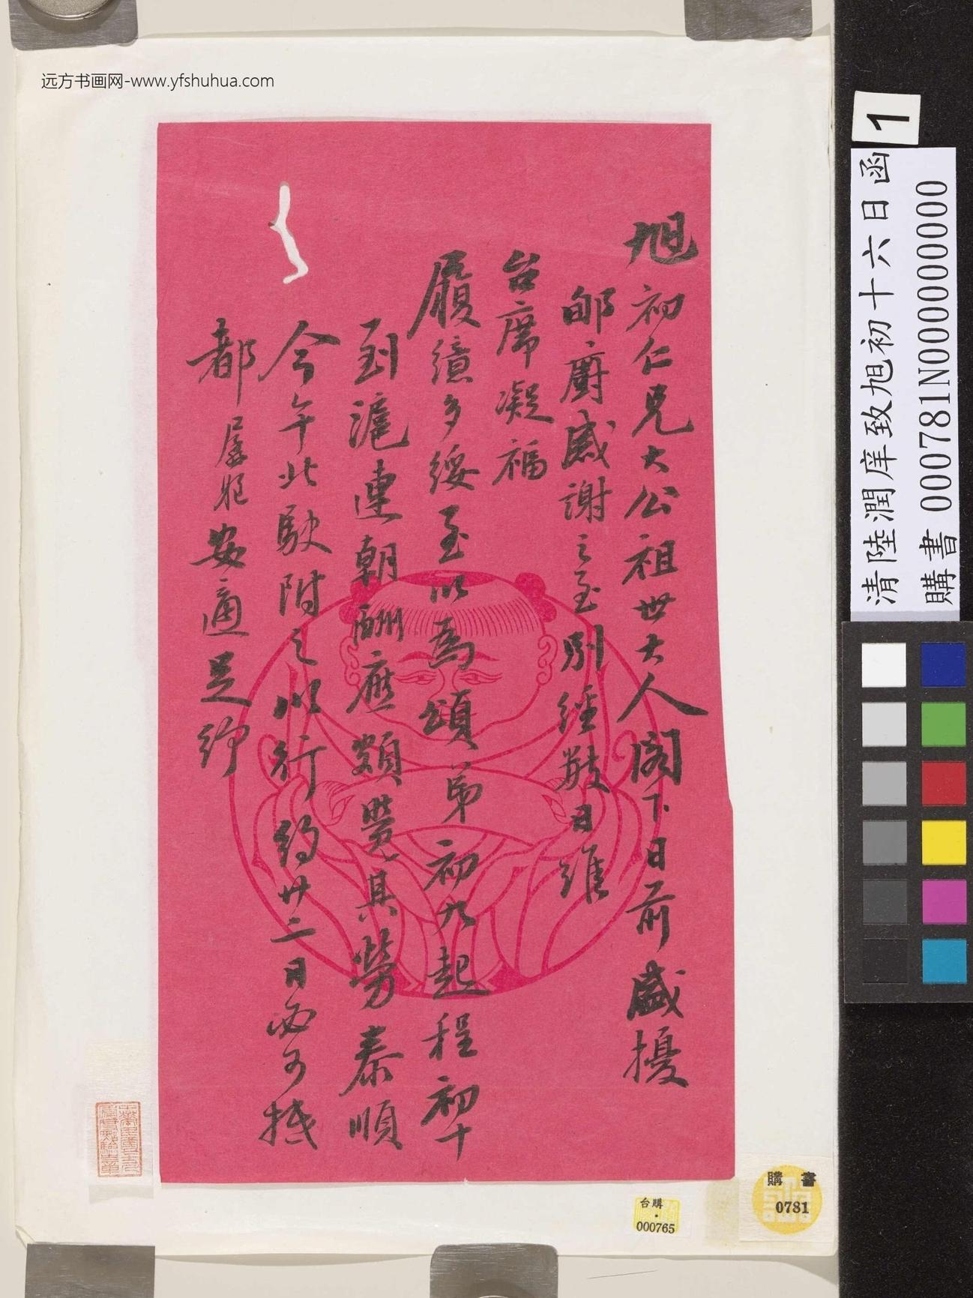 远方书画网-www.yfshuhua.com
旭初仁兄大公祖世大人閣下日前盛擾
郇廚感謝之至別經數日維
台席凝福
履繶多綏至以為頌弟初九起程初十
到滬連朝酬應頗覺其勞泰順
今午北駛附之以行約廿二日必可抵
都屋妮安適足紓
1
清陸潤庠致旭初十六日函
購書 000781N000000000
台購·000765
購書
0781